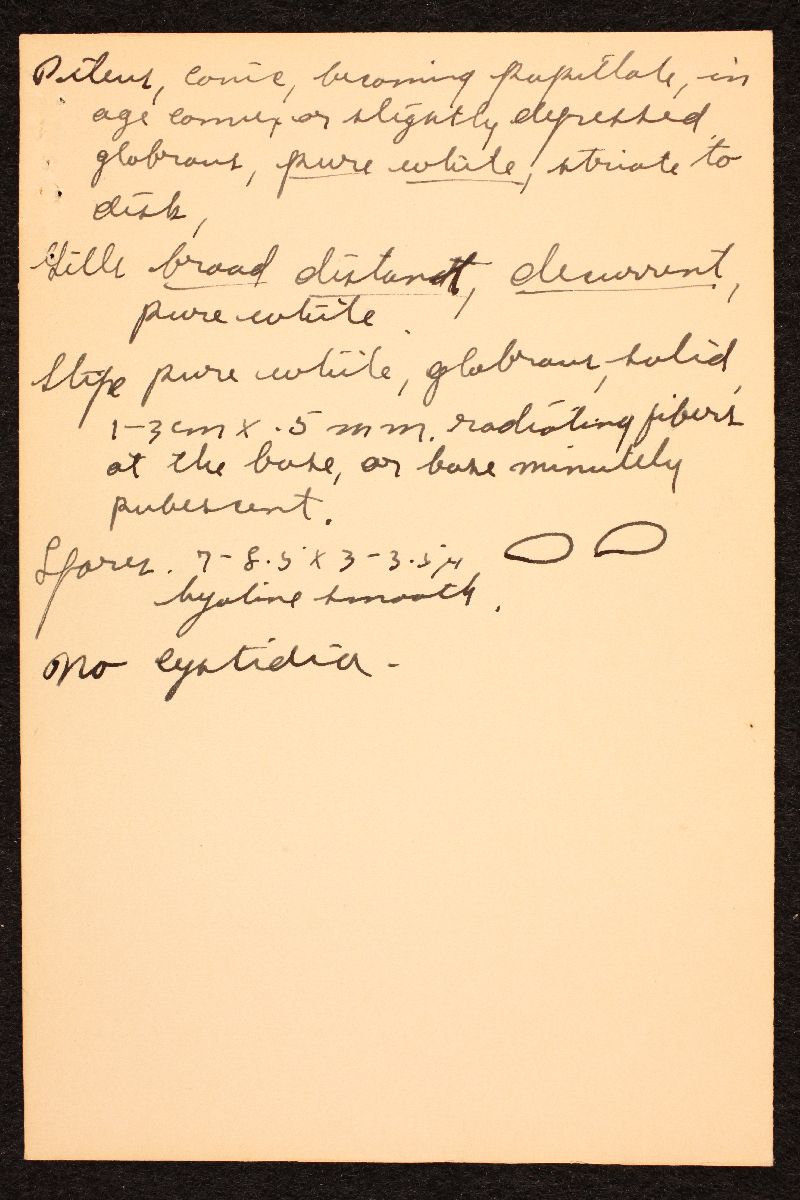 Pileus, conic, becoming papillate, in
age convex or slightly depressed,
glabrous, pure white, striate to
disk,
Gills broad distant, decurrent,
pure white.
Stipe pure white, glabrous, solid,
1-3 cm x .5 mm. radiating fibers
at the base, or base minutely
pubescent.
Spores. 7-8.5 x 3-3.5 µ
hyaline smooth.
No cystidia -